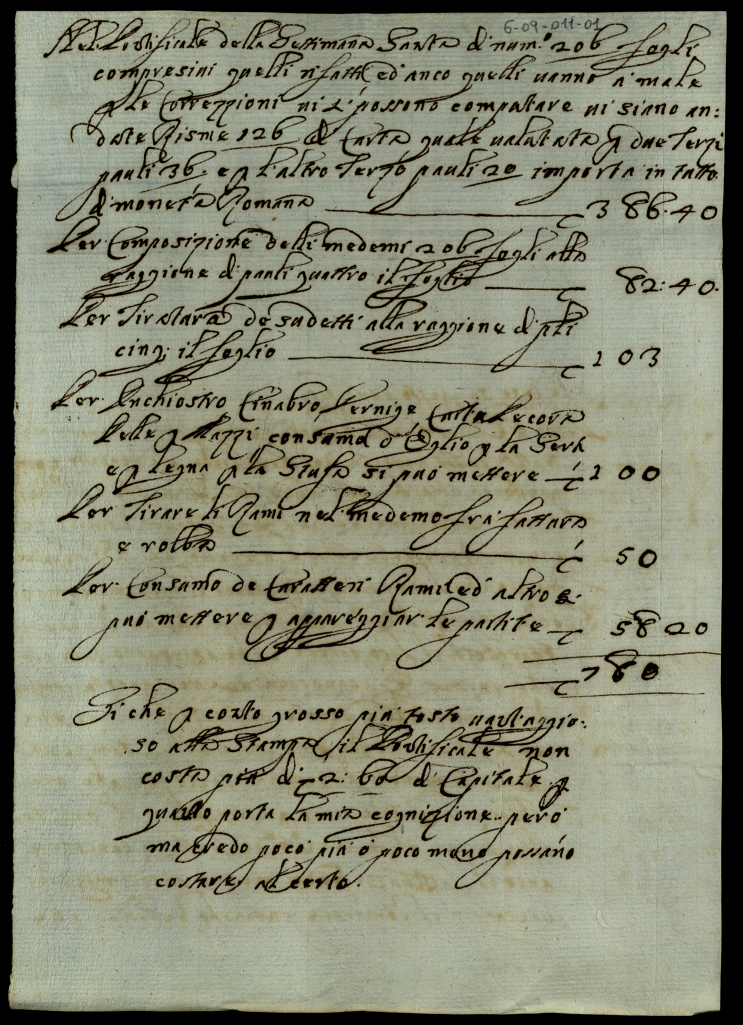 6-09-011-01
Nel Pontificale della Settimana Santa di num.º 206 fogli
compresivi quelli rifatti ed anco quelli vanno a male
p le Correzzioni vi si possono computare vi siano an:
date Risme 126 di Carta quale valutata p due Terzi
pauli 36. e p l'altro Terzo pauli 20 importa in tutto
di moneta Romana 386.40
Per Composizione delli medemi 206 fogli alla
raggione di pauli quattro il foglio 82.40.
Per Tiratura de sudetti alla raggione di pli
cinq; il foglio 103
Per Inchiostro Cinabro, Vernige
Pelle p Mazzi consumo d'Oglio p la Sera
e p legna p la Stufa si può mettere 100
Per Tirare li Rami nel medemo frà fattura
e robba 50
Per Consumo de Caratteri Rami ed altro si
può mettere p appareggiar le partite 5820
780
Si che p conto grosso più tosto vantaggio:
so alla Stampa, il Pontificale non
costa più di 2: 60 di Capitale p
quanto porta la mia cognizione però
ma credo poco più ò poco meno possano
costare al certo.